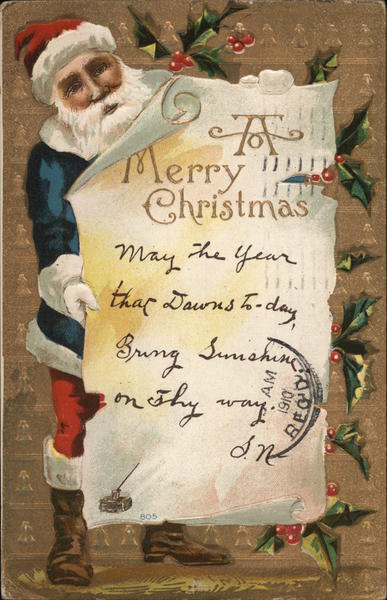 A
Merry
Christmas
May the Year
that Dawns to-day,
Bring Sunshine
on Thy way.
S.N
AM
1910
REC'D
805